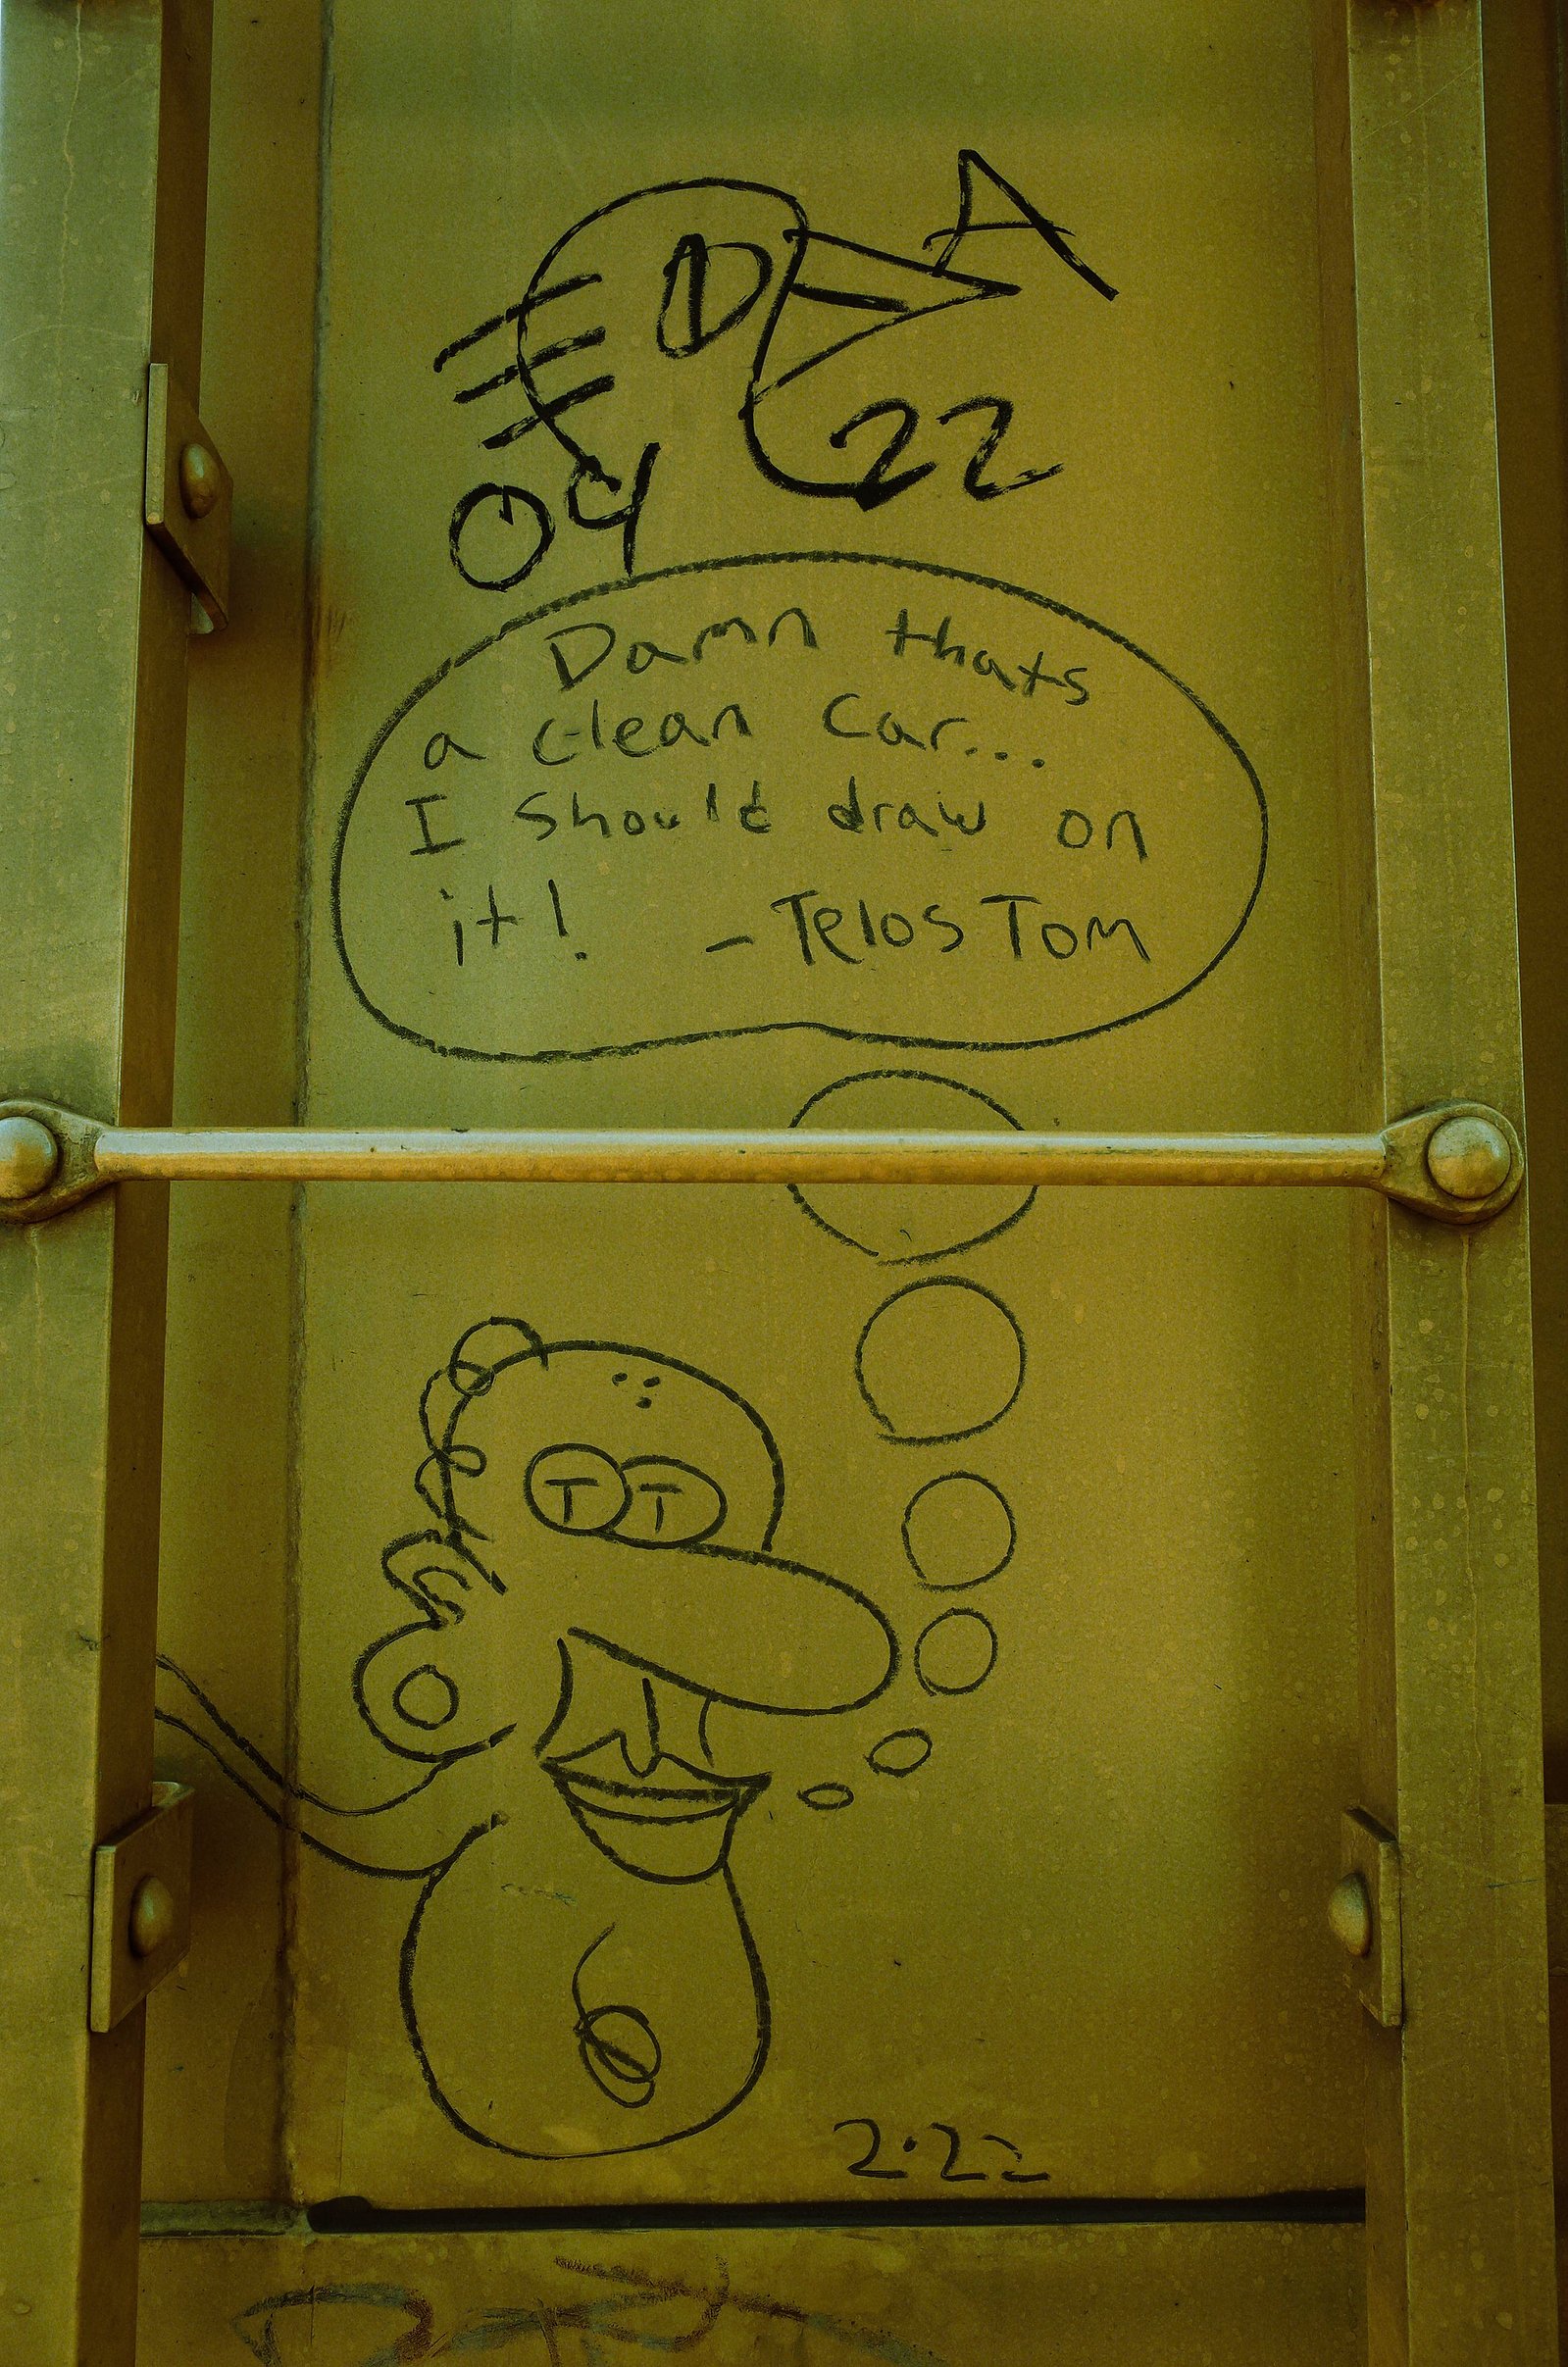 A
22
04
Damn thats
a clean car...
I should draw on
it! - Telos Tom
T T
2.22